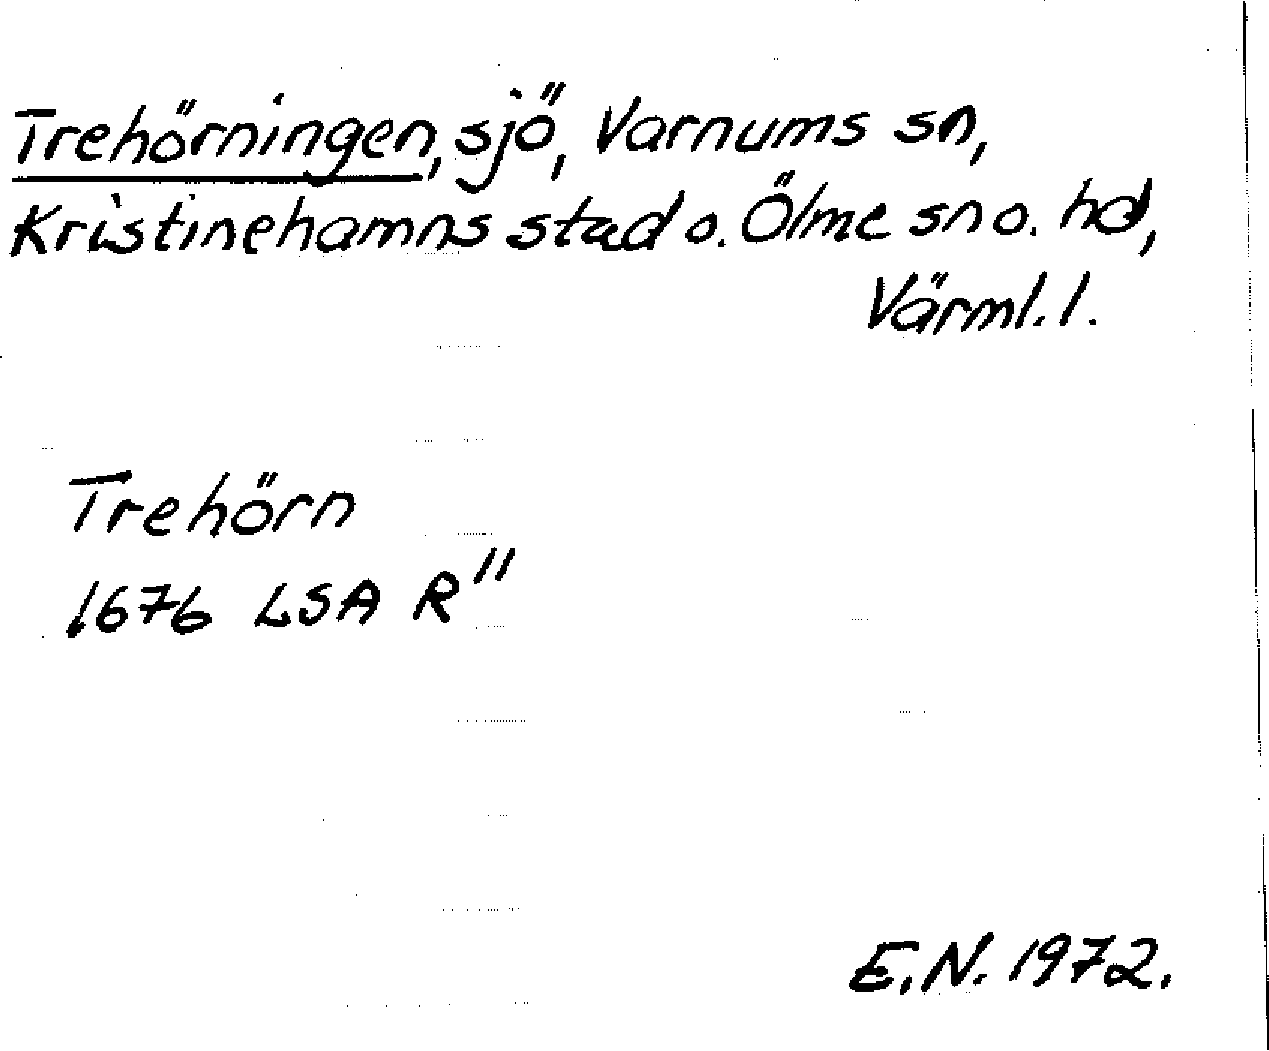 Trehörningen, sjö, Varnums sn,
Kristinehamns stad o. Ölme sn o. hd,
Värml. l.
Trehörn
1676 LSA R"
E.N. 1972.